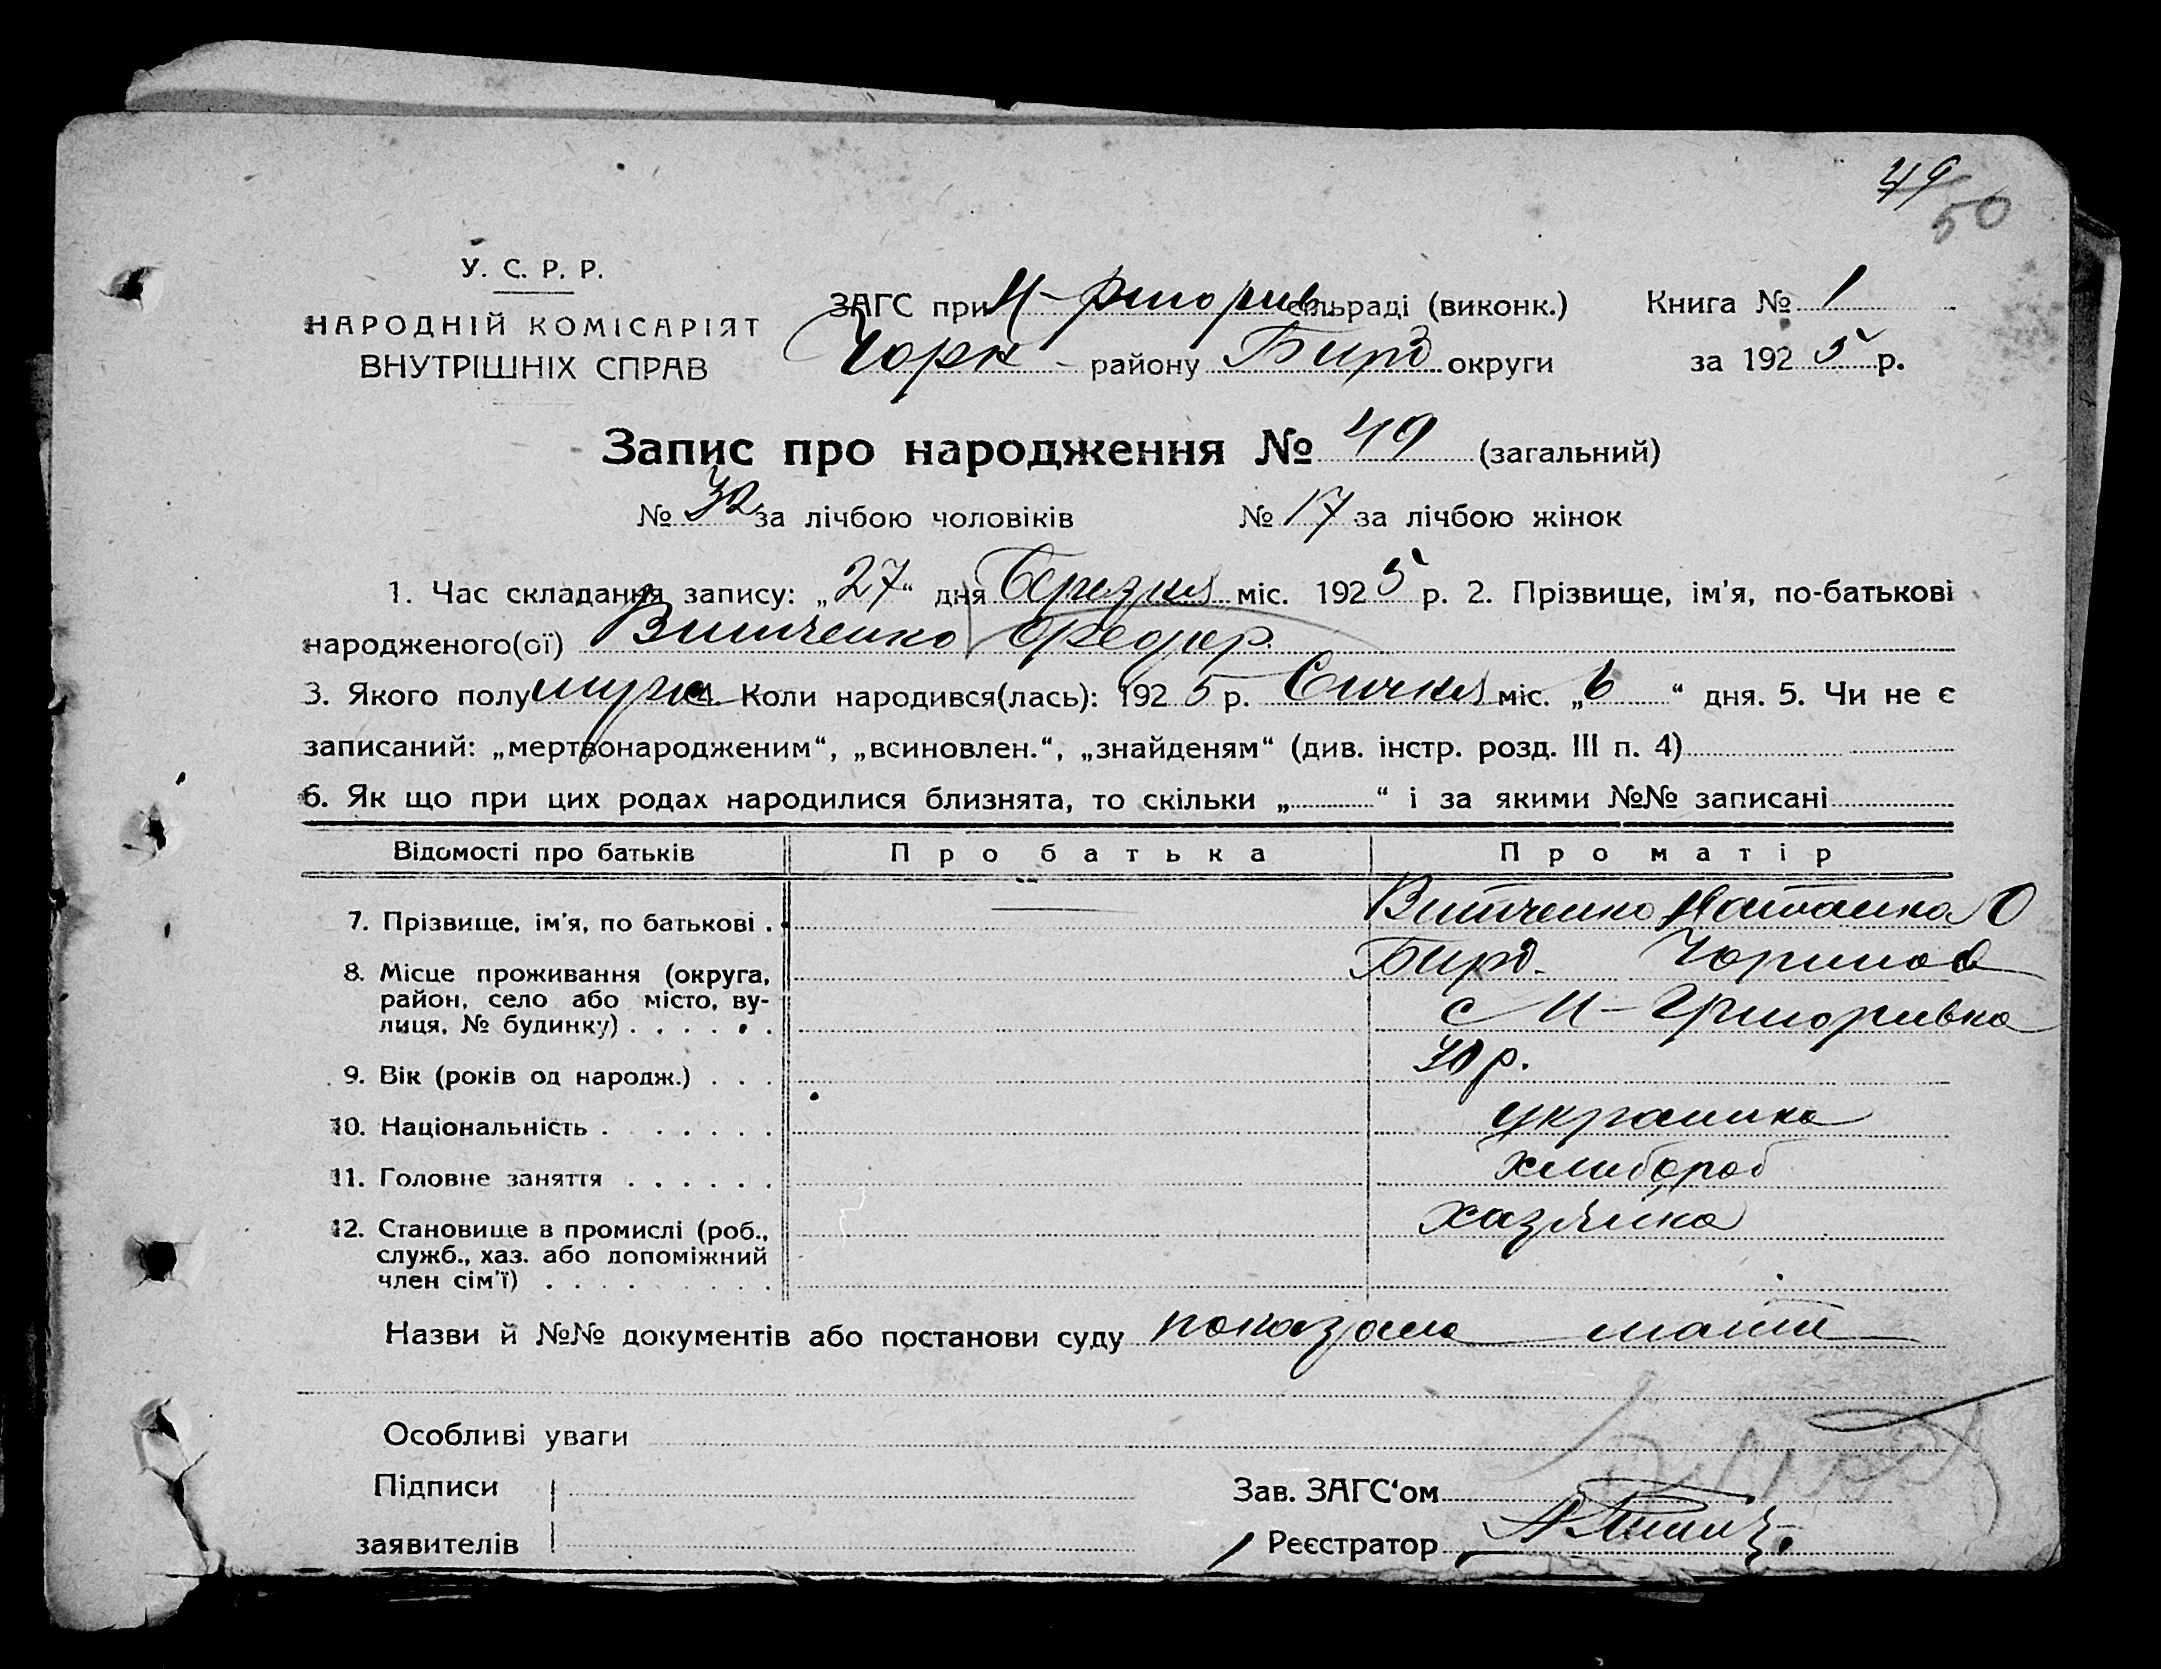 49
50
У. С. Р. Р.
НАРОДНІЙ КОМІСАРІЯТ
ВНУТРІШНІХ СПРАВ
ЗАГС при сільраді (виконк.) Книга № 1
району округи за 1925 р.
Запис про народження № 49 (загальний)
№ 32 за лічбою чоловіків № 17 за лічбою жінок
1. Час складання запису: „27“ дня Березня міс. 1925 р. 2. Прізвище, ім'я, по-батькові
народженого(ої) Витченко Федор
3. Якого полу муж 4. Коли народився(лась): 1925 р. Сичня міс. „6“ дня. 5. Чи не є
записаний: „мертвонародженим“, „всиновлен.“, „знайденям“ (див. інстр. розд. III п. 4)
6. Як що при цих родах народилися близнята, то скільки „ “ і за якими №№ записані
Відомості про батьків Про батька Про матір
7. Прізвище, ім'я, по батькові . Витченко Наталка О
8. Місце проживання (округа, Бирд.
район, село або місто, ву-
лиця, № будинку) . . . . . . с Н-Григоривка
9. Вік (років од народж.) . . . р.
10. Національність . . . . . . . украинка
11. Головне заняття . . . . . . хлибороб
12. Становище в промислі (роб., хазяйка
служб., хаз. або допоміжний
член сім'ї) . . . . . . . . .
Назви й №№ документів або постанови суду показала мати
Особливі уваги
Підписи
заявителів
Зав. ЗАГС'ом
Реєстратор